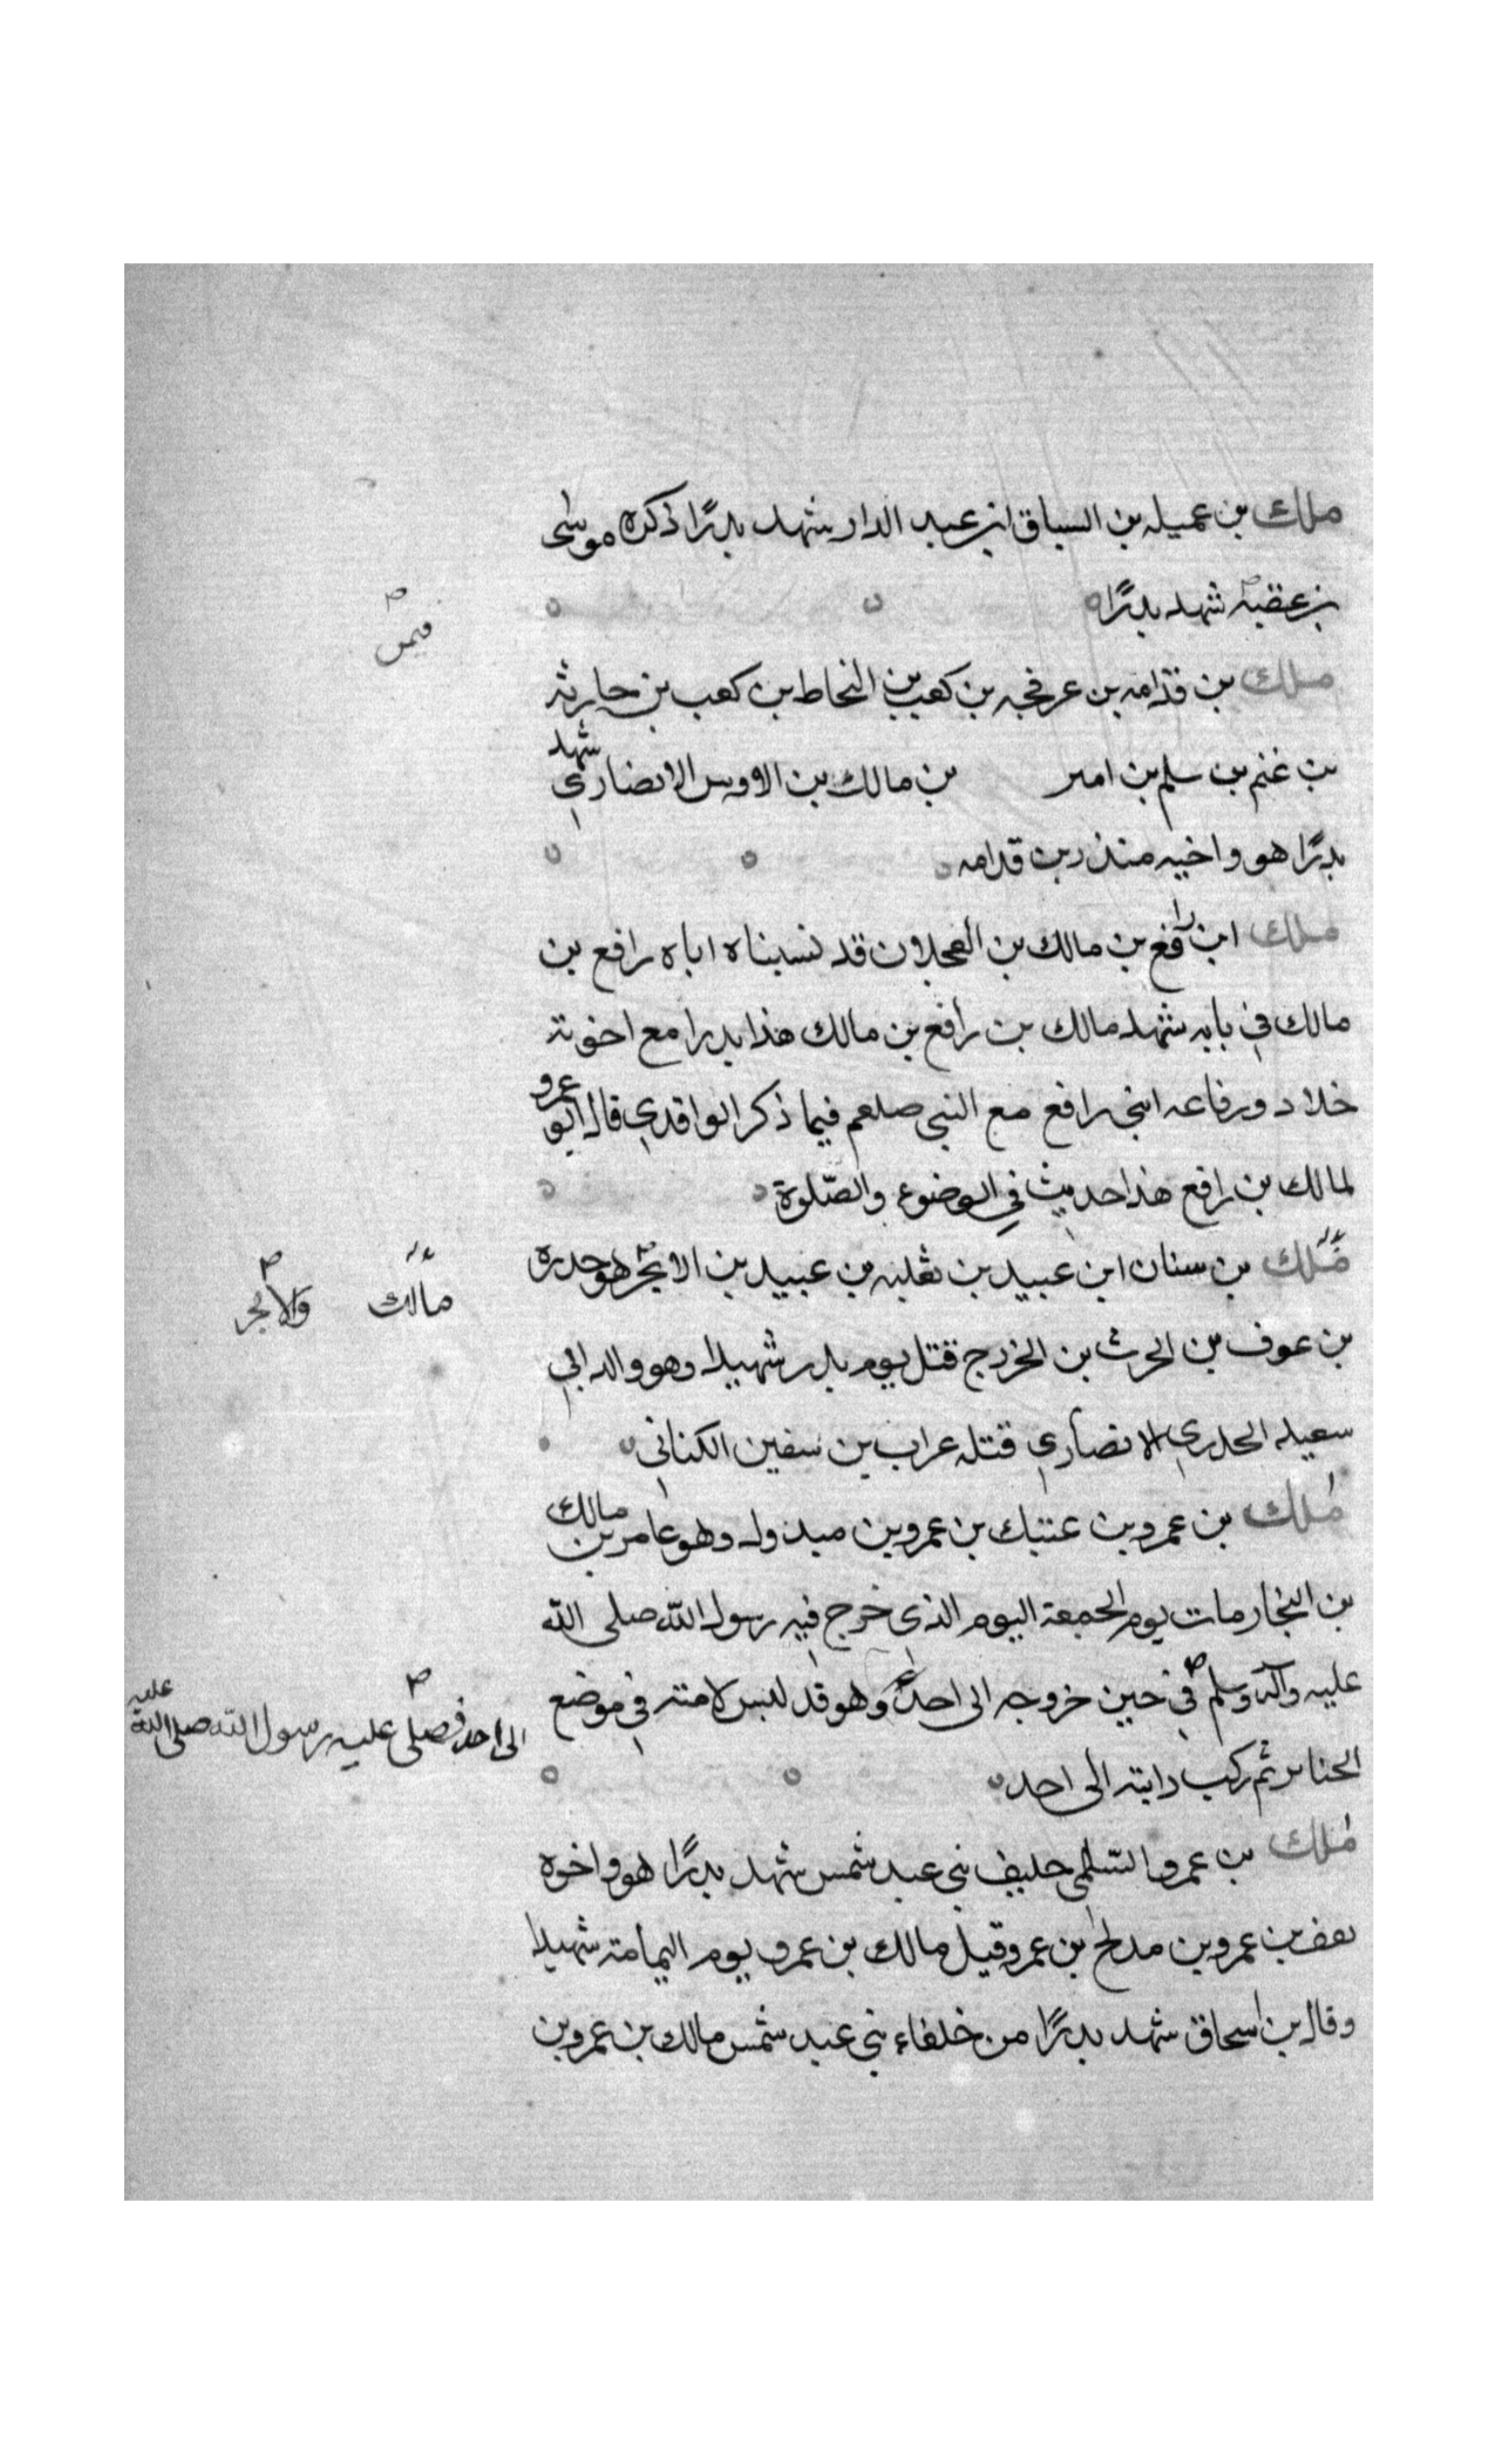 ملك بن عميله بن السباق بن عبد الدار شهد بدرًا ذكره موسى
بن عقبه شهد بدرًا
فيمن
ملك بن قدامه بن عرفجه بن كعب بن النحاط بن كعب بن حارثه
بن غنم بن سلم بن امر بن مالك بن الاوس الانصاري شهد
بدرًا هو واخيه منذر بن قدامه
ملك ابن رافع بن مالك بن العجلان قد نسبناه اباه رافع بن
مالك في بابه شهد مالك بن رافع بن مالك هذا بدرا مع اخوته
خلاد ورفاعه ابني رافع مع النبي صلعم فيما ذكر الواقدي قال ابو عمرو
لمالك بن رافع هذا حديث في الوضوء والصلوة
ملك بن سنان ابن عبيد بن ثعلبه بن عبيد بن الابجر هو خدره
مالك والابجر
بن عوف بن الحرث بن الخزرج قتل يوم بدر شهيدا وهو والد ابي
سعيد الخدري الانصاري قتله عراب بن سفين الكناني
ملك بن عمرو بن عتيك بن عمرو بن مبذول وهو عامر بن مالك
بن النجار مات يوم الجمعة اليوم الذي خرج فيه رسول الله صلى الله
عليه وآله وسلم في حين خروجه الى احد وهو قد لبس لامته في موضع
الى احد فصلى عليه رسول الله صلى الله عليه
الجنايز ثم ركب دابته الى احد
ملك بن عمرو السلمي حليف بني عبد شمس شهد بدرًا هو واخوه
ثقف بن عمرو بن مدلج بن عمرو قيل مالك بن عمرو يوم اليمامة شهيدا
وقال بن اسحاق شهد بدرًا من خلفاء بني عبد شمس مالك بن عمرو بن